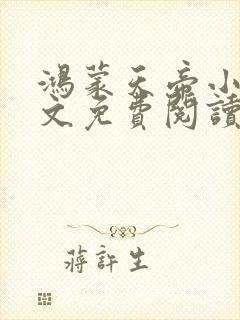 鴻蒙天帝小
文免費閱讀
蔣許生